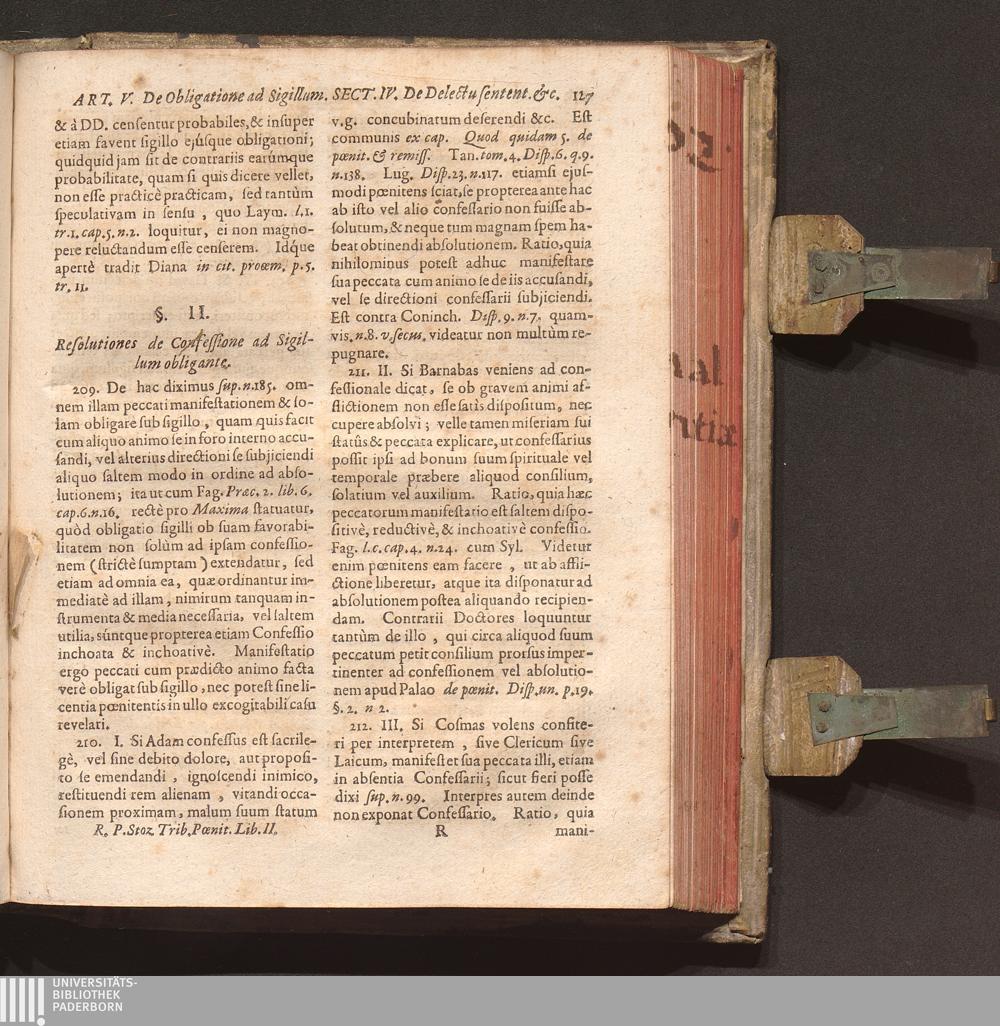 ART. V. De Obligatione ad Sigillum. SECT. IV. De Delectu sentent. &c. 127
& à DD. censentur probabiles, & insuper
etiam favent sigillo ejúsque obligationi;
quidquid jam sit de contrariis earúmque
probabilitate, quam si quis dicere vellet,
non esse practicè practicam, sed tantùm
speculativam in sensu, quo Laym. l. 1.
tr. 1. cap. 5. n. 2. loquitur, ei non magno-
pere reluctandum esse censerem. Idq́ue
apertè tradit Diana in cit. proœm. p. 5.
tr. 11.
§. II.
Resolutiones de Confessione ad Sigil-
lum obligante.
209. De hac diximus sup. n. 185. om-
nem illam peccati manifestationem & so-
lam obligare sub sigillo, quam quis facit
cum aliquo animo se in foro interno accu-
sandi, vel alterius directioni se subjiciendi
aliquo saltem modo in ordine ad abso-
lutionem; ita ut cum Fag. Præc. 2. lib. 6.
cap. 6. n. 16. rectè pro Maxima statuatur,
quòd obligatio sigilli ob suam favorabi-
litatem non solùm ad ipsam confessio-
nem (strictè sumptam) extendatur, sed
etiam ad omnia ea, quæ ordinantur im-
mediatè ad illam, nimirum tanquam in-
strumenta & media necessaria, vel saltem
utilia, súntque propterea etiam Confessio
inchoata & inchoativè. Manifestatio
ergo peccati cum prædicto animo facta
verè obligat sub sigillo, nec potest sine li-
centia pœnitentis in ullo excogitabili casu
revelari.
210. I. Si Adam confessus est sacrile-
gè, vel sine debito dolore, aut proposi-
to se emendandi, ignoscendi inimico,
restituendi rem alienam, vitandi occa-
sionem proximam, malum suum statum
R. P. Stoz Trib. Pœnit. Lib. II.
v. g. concubinatum deserendi &c. Est
communis ex cap. Quod quidam 5. de
pœnit. & remiss. Tan. tom. 4. Disp. 6. q. 9.
n. 138. Lug. Disp. 23. n. 117. etiamsi ejus-
modi pœnitens sciat, se propterea ante hac
ab isto vel alio confessario non fuisse ab-
solutum, & neque tum magnam spem ha-
beat obtinendi absolutionem. Ratio, quia
nihilominus potest adhuc manifestare
sua peccata cum animo se de iis accusandi,
vel se directioni confessarii subjiciendi.
Est contra Coninch. Disp. 9. n. 7. quam-
vis, n. 8. v. secus, videatur non multùm re-
pugnare.
211. II. Si Barnabas veniens ad con-
fessionale dicat, se ob gravem animi af-
flictionem non esse satìs dispositum, nec
cupere absolvi; velle tamen miseriam sui
statûs & peccata explicare, ut confessarius
possit ipsi ad bonum suum spirituale vel
temporale præbere aliquod consilium,
solatium vel auxilium. Ratio, quia hæc
peccatorum manifestatio est saltem dispo-
sitivè, reductivè, & inchoativè confessio.
Fag. l. c. cap. 4. n. 24. cum Syl. Videtur
enim pœnitens eam facere, ut ab affli-
ctione liberetur, atque ita disponatur ad
absolutionem postea aliquando recipien-
dam. Contrarii Doctores loquuntur
tantùm de illo, qui circa aliquod suum
peccatum petit consilium prorsus imper-
tinenter ad confessionem vel absolutio-
nem apud Palao de pœnit. Disp. un. p. 19.
§. 2. n 2.
212. III. Si Cosmas volens confite-
ri per interpretem, sive Clericum sive
Laicum, manifestet sua peccata illi, etiam
in absentia Confessarii; sicut fieri posse
dixi sup. n. 99. Interpres autem deinde
non exponat Confessario. Ratio, quia
R mani-
UNIVERSITÄTS-
BIBLIOTHEK
PADERBORN